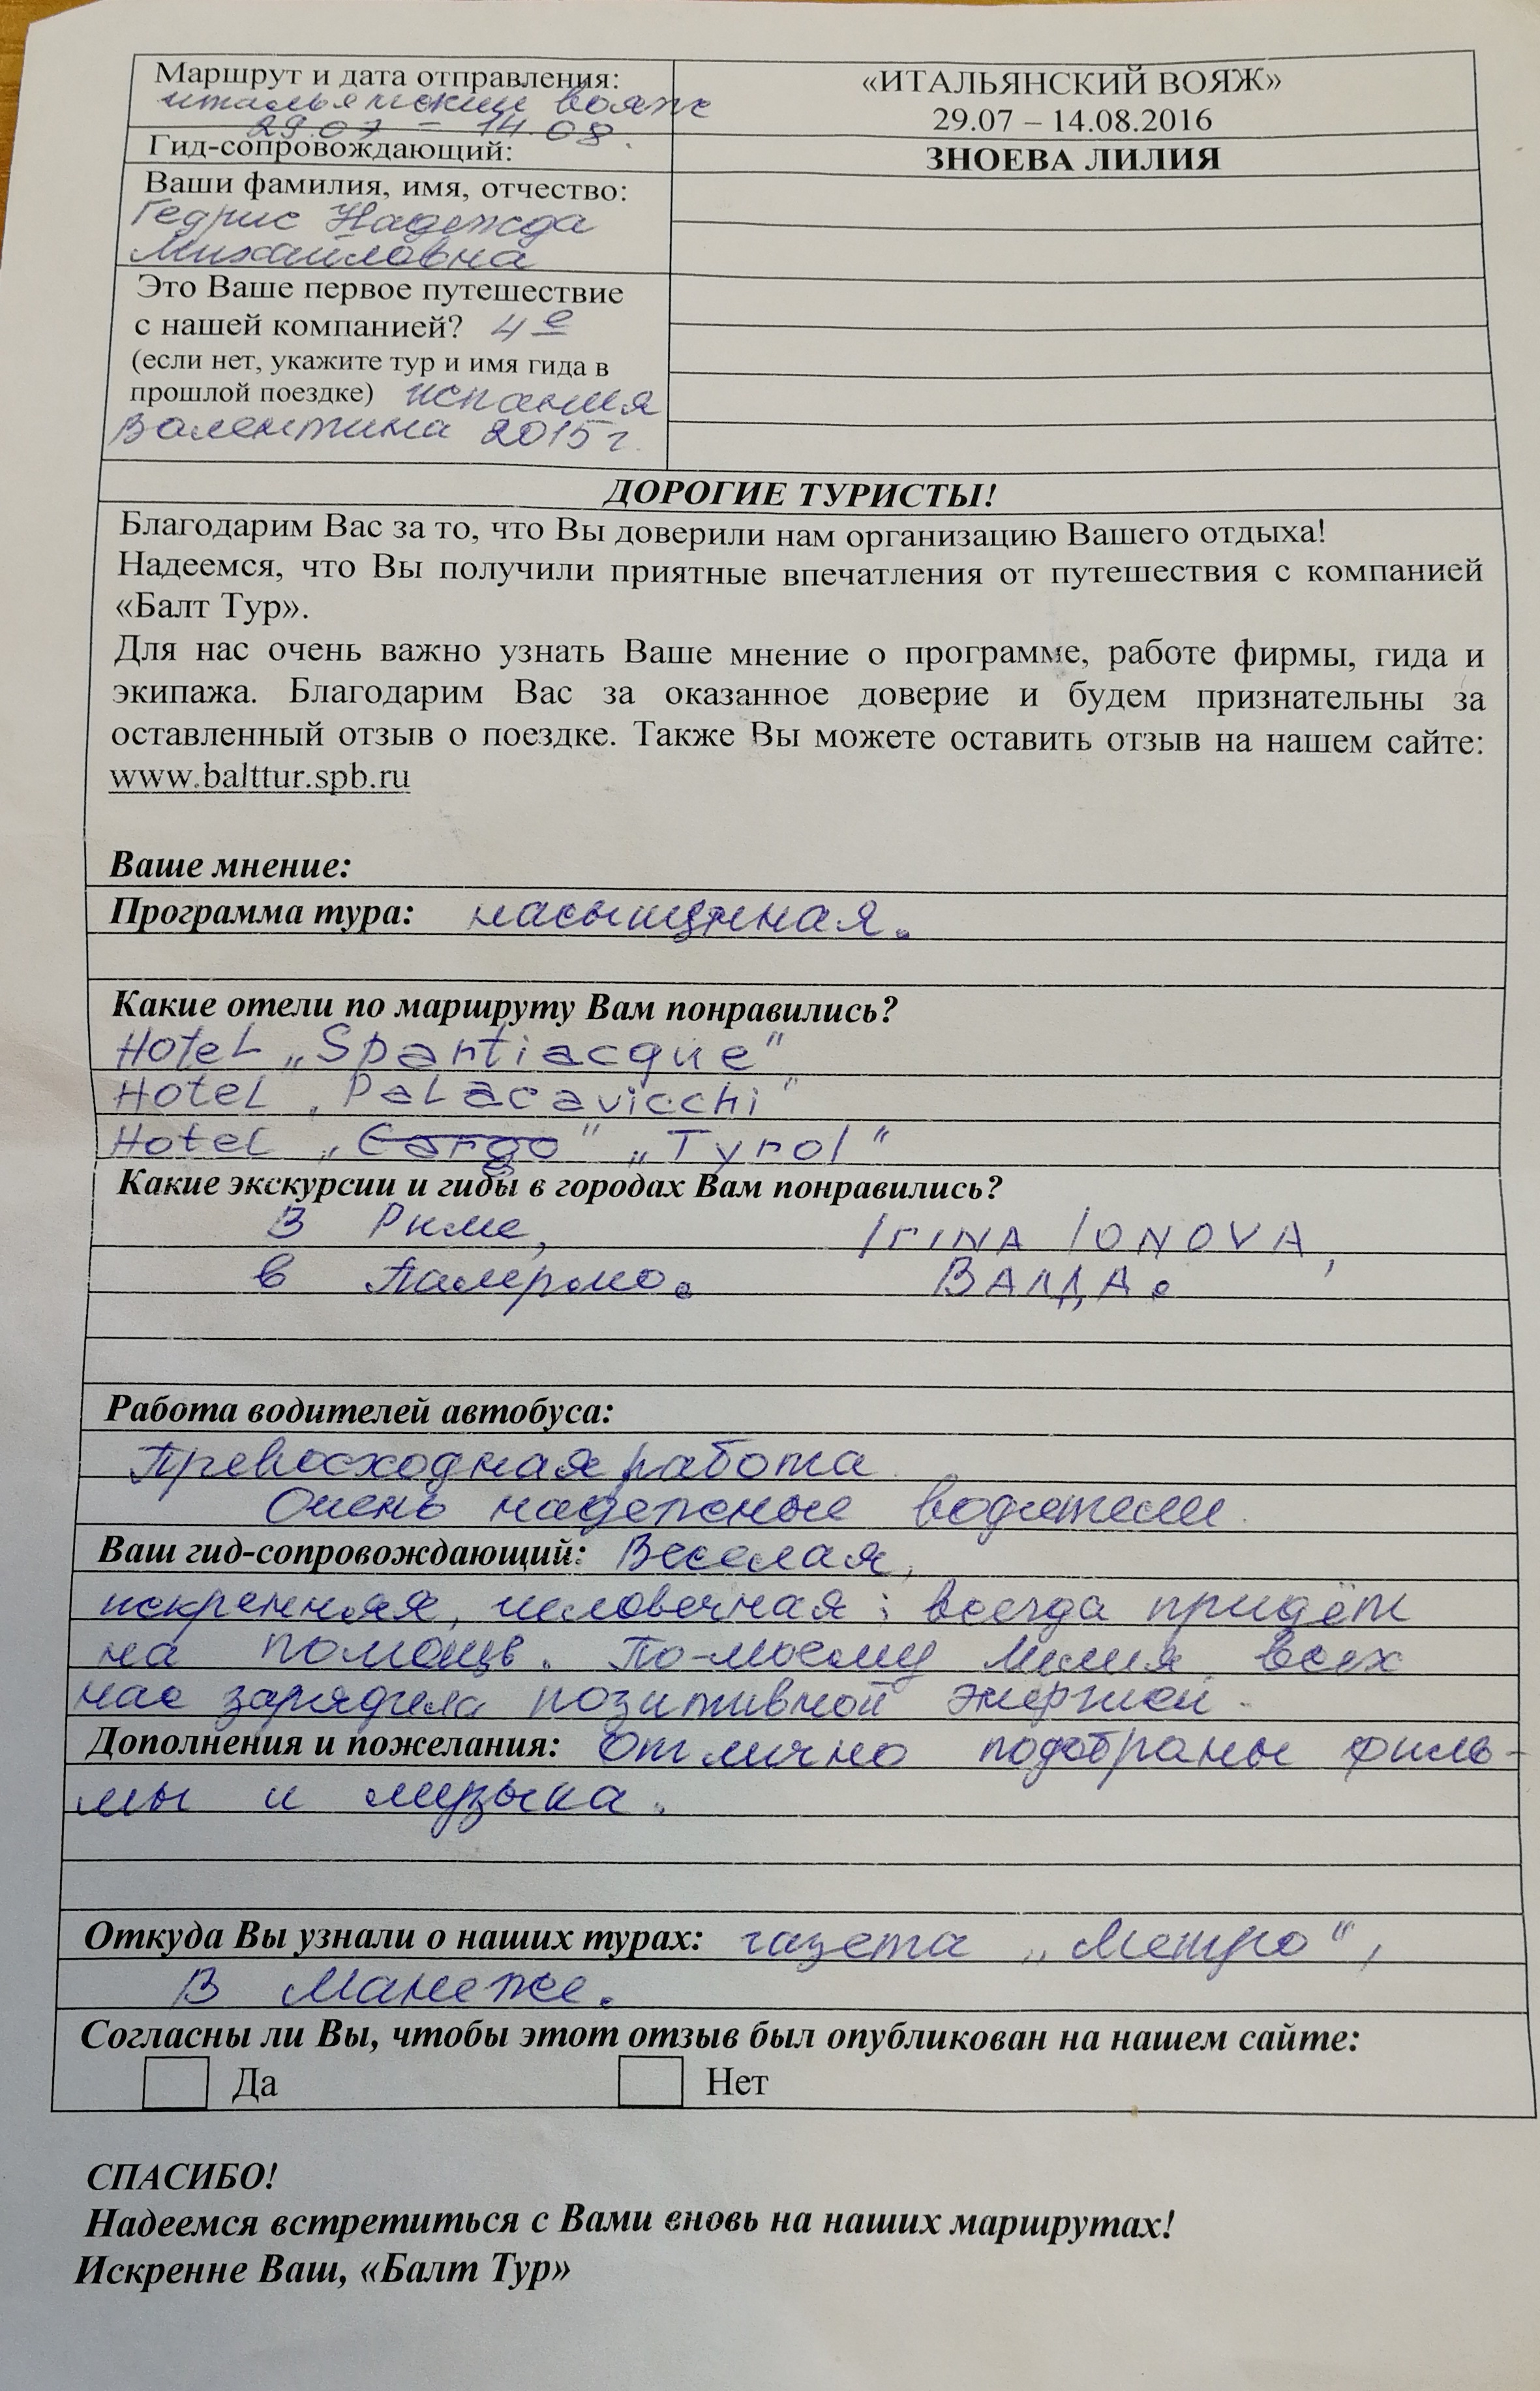 Маршрут и дата отправления:
итальянский вояж
29.07 – 14.08.
«ИТАЛЬЯНСКИЙ ВОЯЖ»
29.07 – 14.08.2016
Гид-сопровождающий:
ЗНОЕВА ЛИЛИЯ
Ваши фамилия, имя, отчество:
Гедрис Надежда
Михайловна
Это Ваше первое путешествие
с нашей компанией? 4е
(если нет, укажите тур и имя гида в
прошлой поездке) испания
Валентина 2015 г.
ДОРОГИЕ ТУРИСТЫ!
Благодарим Вас за то, что Вы доверили нам организацию Вашего отдыха!
Надеемся, что Вы получили приятные впечатления от путешествия с компанией
«Балт Тур».
Для нас очень важно узнать Ваше мнение о программе, работе фирмы, гида и
экипажа. Благодарим Вас за оказанное доверие и будем признательны за
оставленный отзыв о поездке. Также Вы можете оставить отзыв на нашем сайте:
www.balttur.spb.ru
Ваше мнение:
Программа тура: насыщенная.
Какие отели по маршруту Вам понравились?
Hotel „Spantiacque"
Hotel „Palacavicchi"
Hotel „Cargo" „Tyrol"
Какие экскурсии и гиды в городах Вам понравились?
В Риме, IrINA IONOVA,
в Палермо. ВАЛДА.
Работа водителей автобуса:
Превосходная работа.
Очень надежные водители.
Ваш гид-сопровождающий: Веселая,
искренняя, человечная; всегда придёт
на помощь. По-моему Лилия всех
нас зарядила позитивной энергией.
Дополнения и пожелания: Отлично подобраны филь-
мы и музыка.
Откуда Вы узнали о наших турах: газета „Метро",
В Манеже.
Согласны ли Вы, чтобы этот отзыв был опубликован на нашем сайте:
Да Нет
СПАСИБО!
Надеемся встретиться с Вами вновь на наших маршрутах!
Искренне Ваш, «Балт Тур»